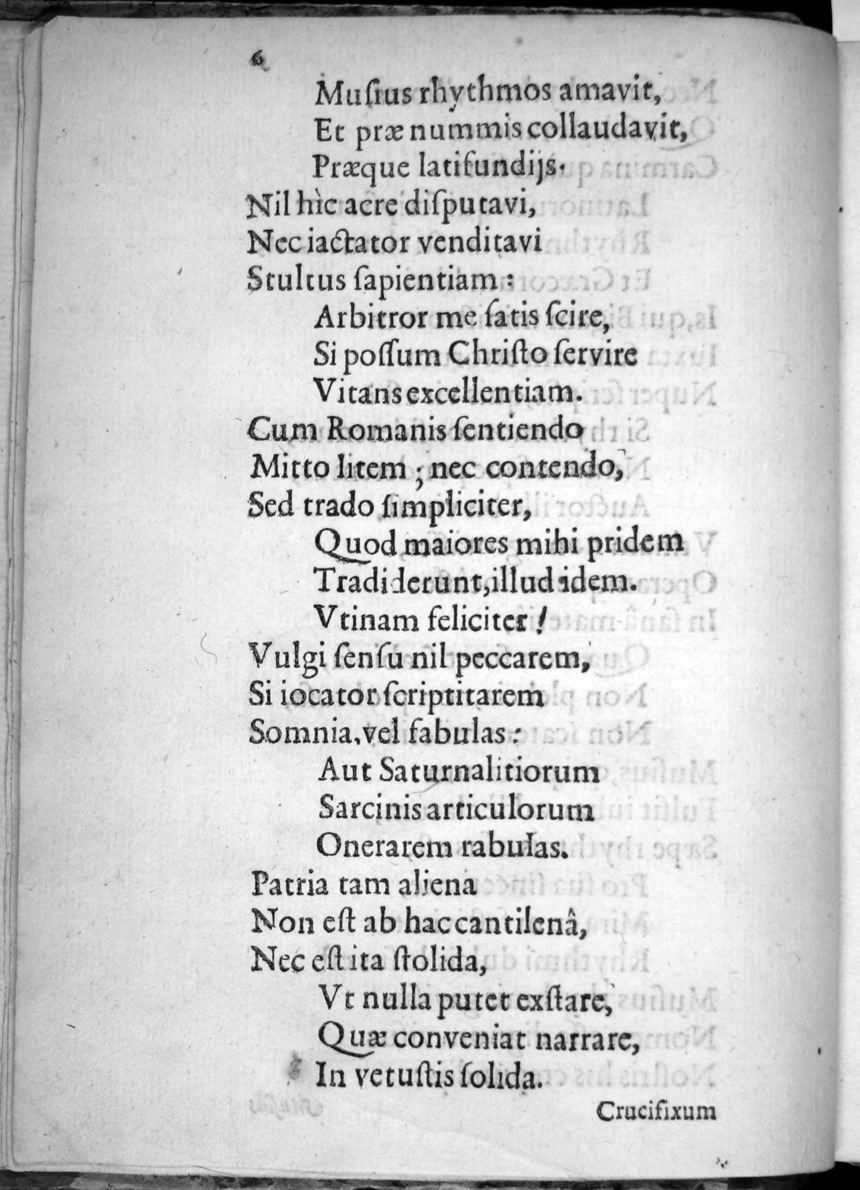 6
Muſius rhythmos amavit,
Et præ nummis collaudavit,
Præque latifundijs.
Nil hìc acre diſputavi,
Nec iactator venditavi
Stultus ſapientiam :
Arbitror me ſatis ſcire,
Si poſſum Chriſto ſervire
Vitans excellentiam.
Cum Romanis ſentiendo
Mitto litem ; nec contendo,
Sed trado ſimpliciter,
Quod maiores mihi pridem
Tradiderunt, illud idem.
Vtinam feliciter !
Vulgi ſenſu nil peccarem,
Si iocator ſcriptitarem
Somnia, vel fabulas :
Aut Saturnalitiorum
Sarcinis articulorum
Onerarem rabulas.
Patria tam aliena
Non eſt ab hac cantilenâ,
Nec eſt ita ſtolida,
Vt nulla putet exſtare,
Quæ conveniat narrare,
In vetuſtis ſolida.
Crucifixum